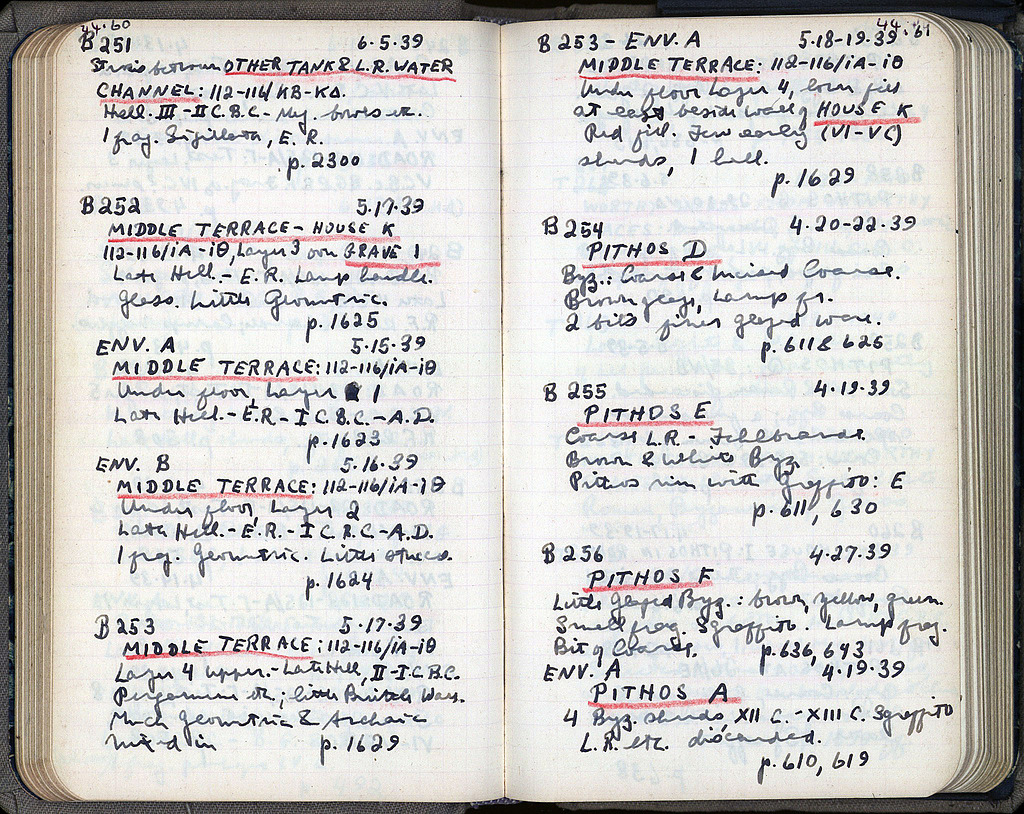 44.60
B 251 6.5.39
between OTHER TANK & L.R. WATER
CHANNEL: 112-116/KB-KΔ.
Hell. III-II C.B.C.- Meg. bowls etc.
1 frag. Sigillata, E.R.
p. 2300
B 252 5.17.39
MIDDLE TERRACE - HOUSE K
112-116/iA-iΘ, Layer 3 over GRAVE 1
Late Hell. - E.R. Lamp handle.
Glass. Little Geometric.
p. 1625
ENV. A 5.15.39
MIDDLE TERRACE: 112-116/iA-iΘ
Under floor, Layer 1
Late Hell. - E.R. - I C.B.C.-A.D.
p. 1623
ENV. B 5.16.39
MIDDLE TERRACE: 112-116/iA-iΘ
Under floor, Layer 2
Late Hell. - E.R. - I C.B.C.-A.D.
1 frag. Geometric. Little
p. 1624
B 253 5.17.39
MIDDLE TERRACE: 112-116/iA-iΘ
Layer 4 upper. - Late Hell., II-I C.B.C.
Pergamene etc.; little British Ware.
Much Geometric & Archaic
mixed in p. 1629
44.61
B 253 - ENV. A 5.18-19.39
MIDDLE TERRACE: 112-116/iA-iΘ
Under floor Layer 4, lower fill
at east beside wall of HOUSE K
Red fill. Few early (VI-V C)
sherds, 1 Hell.
p. 1629
B 254 4.20-22.39
PITHOS D
Byz.: Coarse & Incised Coarse.
Brown glaze, Lamp fr.
2 bits finer glazed ware.
p. 611 & 625
B 255 4.19.39
PITHOS E
Coarse L.R. -
Brown & White Byz.
Pithos rim with Graffito: E
p. 611, 630
B 256 4.27.39
PITHOS F
Little glazed Byz.: brown, yellow, green.
Small frag. Sgraffito. Lamp frag.
Bit of Coarse. p. 636, 643
ENV. A 4.19.39
PITHOS A
4 Byz. sherds, XII C. - XIII C. Sgraffito
L.R. etc. discarded.
p. 610, 619